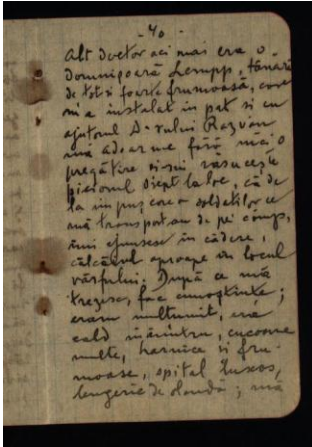 - 40 -
Alt doctor aci mai era o
Domnișoară Lempp, tânără
de tot și foarte frumoasă, care
m'a instalat în pat și cu
ajutorul D-rului Razvan
mă adoarme fără nici o
pregătire și-mi răsucește
piciorul drept la loc, că de
la împușcarea soldaților ce
mă transportau de pe câmp,
îmi ajunsese în cădere,
călcâiul aproape în locul
vârfului. După ce mă
trezesc, fac cunoștințe;
eram mulțumit, era
cald înăuntru, cucoane
multe, harnice și fru-
moase, spital luxos,
lengerie de olandă; mă